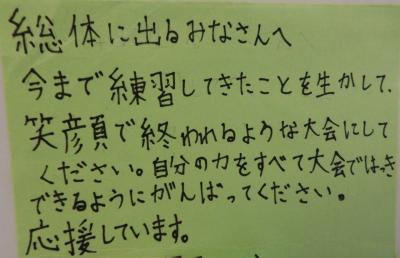 総体に出るみなさんへ
今まで練習してきたことを生かして、
笑顔で終われるような大会にして
ください。自分の力をすべて大会ではっき
できるようにがんばってください。
応援しています。